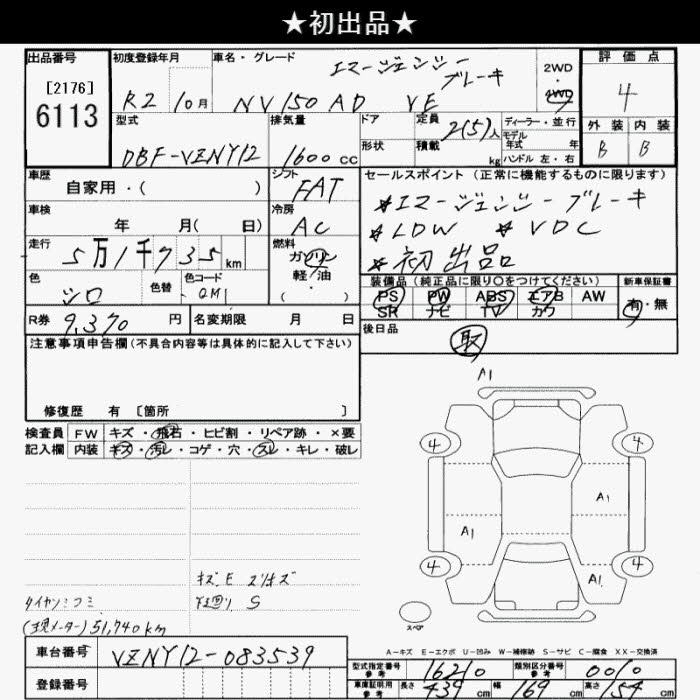 ★初出品★
出品番号 初度登録年月 車名・グレード 評価点
[2176] エマージェンシー ブレーキ 2WD
6113 R2 10月 NV150 AD VE 4WD 4
型式 排気量 ドア 定員 2(5)人 ディーラー・並行 外装 内装
モデル年式 年
DBF-VZNY12 1600cc 形状 積載 kg ハンドル 左・右 B B
車歴 シフト セールスポイント (正常に機能するものに限ります)
自家用・( ) FAT *エマージェンシーブレーキ
車検 冷房 *LDW *VDC
年 月( 日) AC *初出品
走行 燃料
5万1千735km ガソリン
色 色替 色コード 軽油 装備品 (純正品に限り○をつけてください) 新車保証書
シロ QM1 ・( ) PS PW ABS エアB AW 有・無
SR ナビ TV カワ
R券 9,370 円 名変期限 月 日 後日品
注意事項申告欄(不具合内容等は具体的に記入して下さい) 取
修復歴 有 〔箇所 〕
検査員 FW キズ・飛石・ヒビ割・リペア跡・×要
記入欄 内装 キズ・汚レ・コゲ・穴・スレ・キレ・破レ
A1
4 4
A1
A1
4 4
A1
キズ.E スリキズ
タイヤハンコミ 下廻り S
(現メーター)51,740km スペア
A-キズ E-エクボ U-凹み W-補修跡 S-サビ C-腐食 XX-交換済
車台番号 VZNY12-083539
型式指定番号 参考 16210 類別区分番号 参考 0010
登録番号 車庫証明用 参考 長さ 439 cm 幅 169 cm 高さ 154 cm